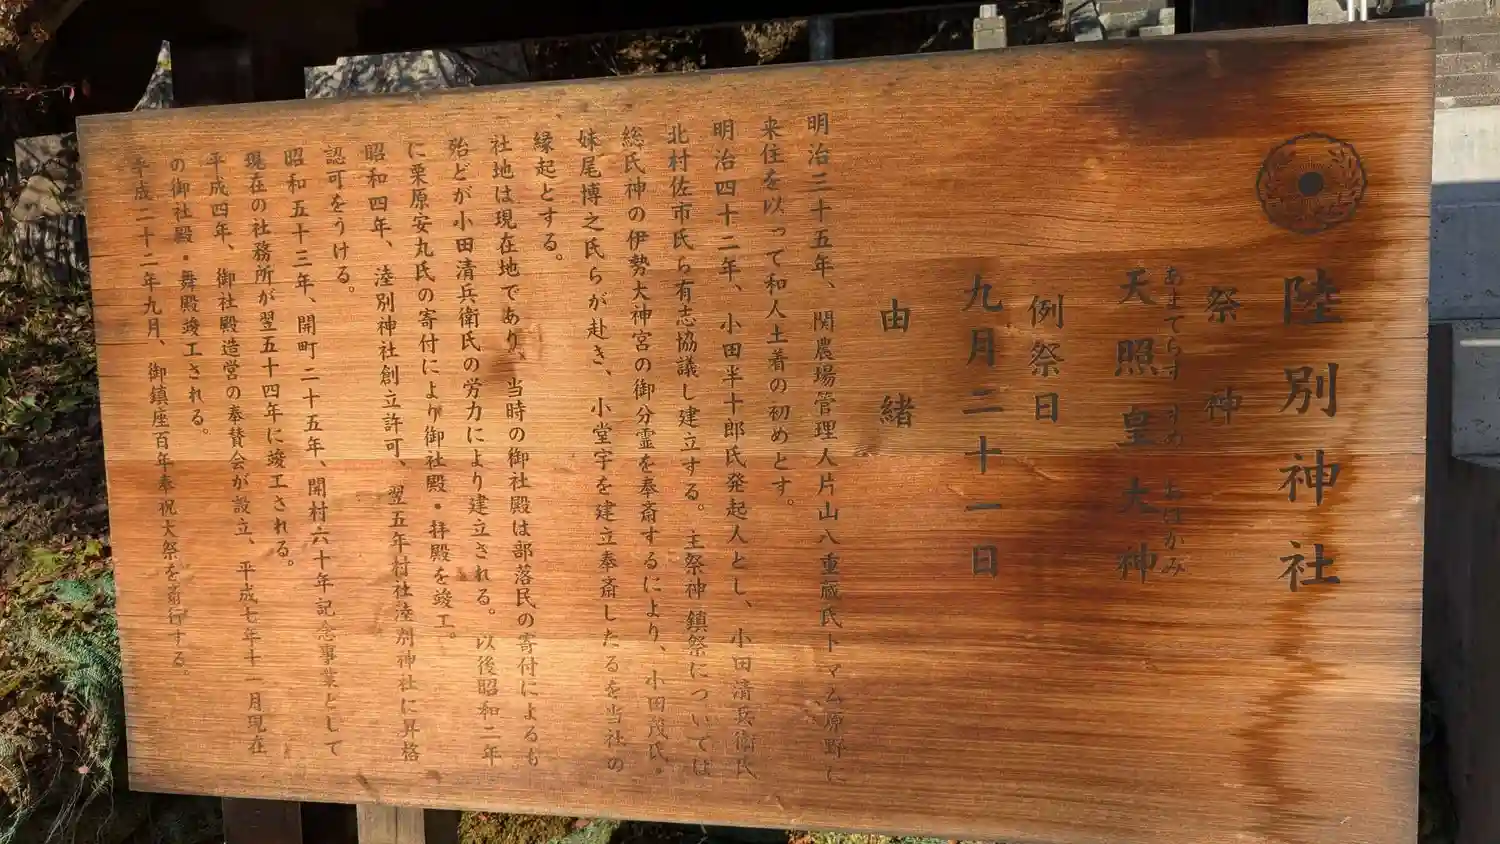 陸別神社
祭神
あまてらす すめ おほかみ
天照皇大神
例祭日
九月二十一日
由緒
明治三十五年、関農場管理人片山八重蔵氏トマム原野に
来住を以って和人土着の初めとす。
明治四十二年、小田半十郎氏発起人とし、小田清兵衛氏
北村佐市氏ら有志協議し建立する。主祭神鎮祭については
総氏神の伊勢大神宮の御分霊を奉斎するにより、小田茂氏・
妹尾博之氏らが赴き、小堂宇を建立奉斎したるを当社の
縁起とする。
社地は現在地であり、当時の御社殿は部落民の寄付によるも
殆どが小田清兵衛氏の労力により建立される。以後昭和二年
に栗原安丸氏の寄付により御社殿・拝殿を竣工。
昭和四年、陸別神社創立許可、翌五年村社陸別神社に昇格
認可をうける。
昭和五十三年、開町二十五年、開村六十年記念事業として
現在の社務所が翌五十四年に竣工される。
平成四年、御社殿造営の奉賛会が設立、平成七年十一月現在
の御社殿・舞殿竣工される。
平成二十二年九月、御鎮座百年奉祝大祭を斎行する。